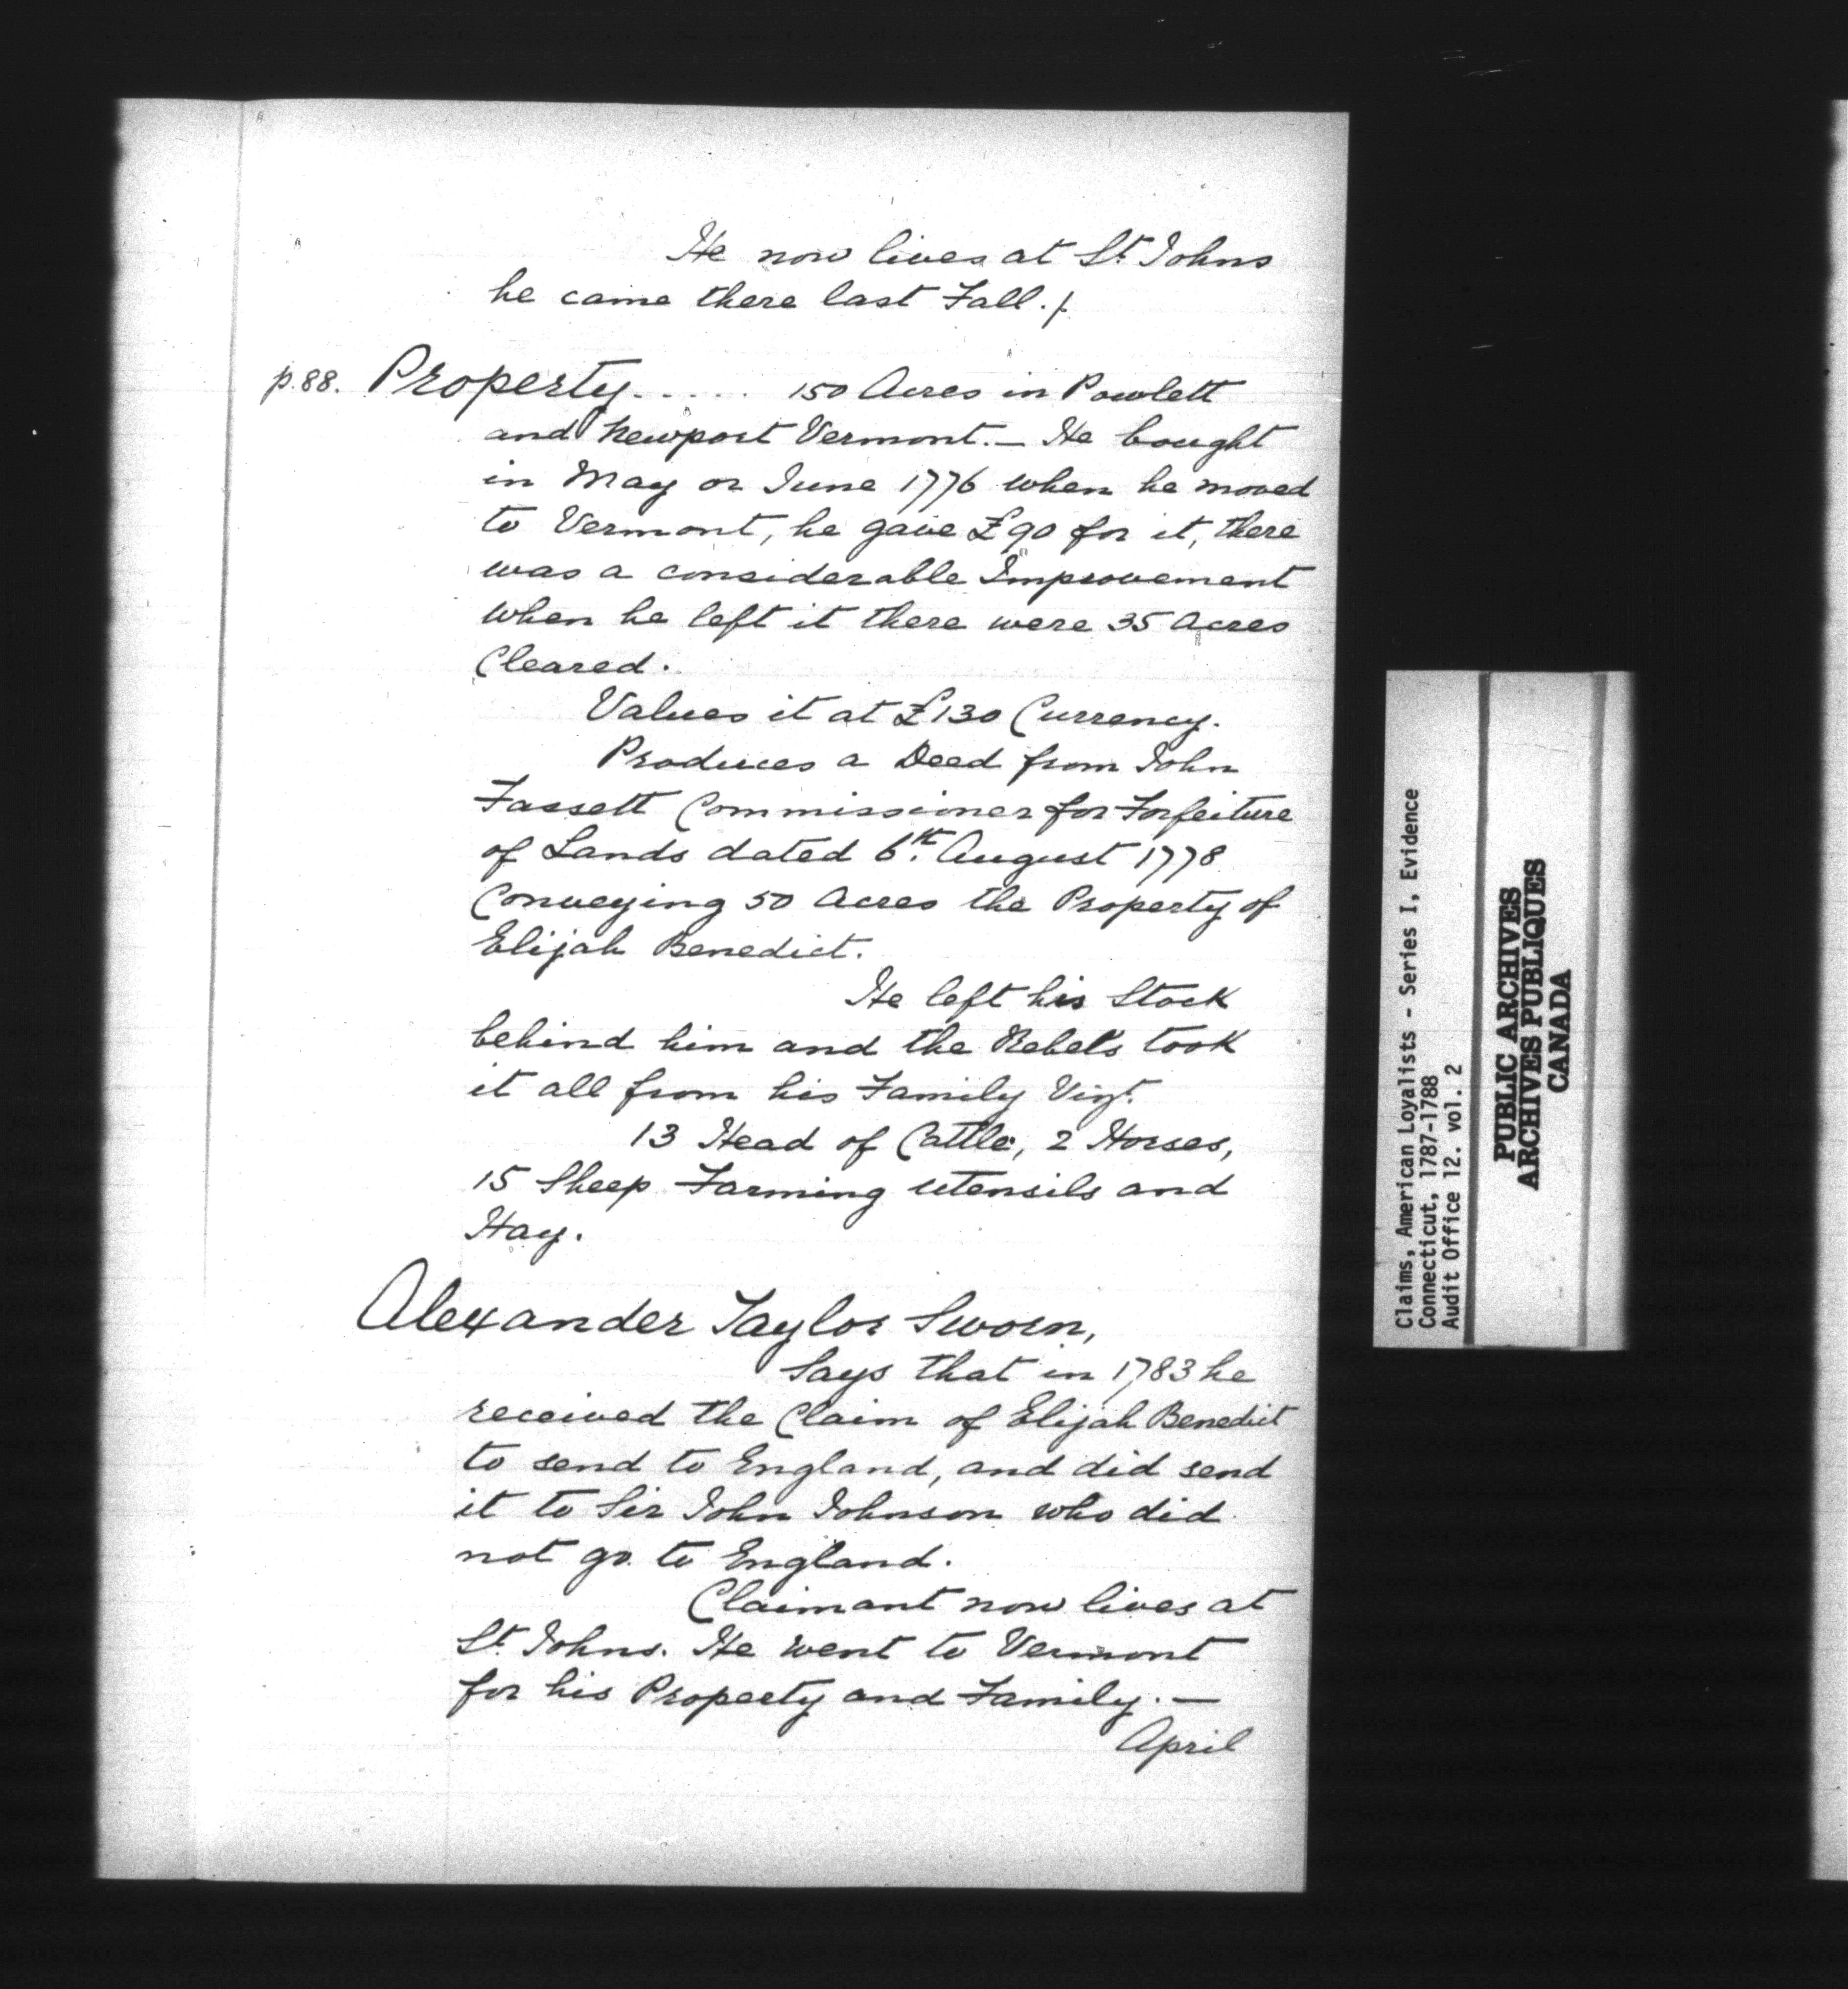 He now lives at St. Johns
he came there last Fall./.
p.88. Property..... 150 Acres in Powlett
and Newport Vermont.— He bought
in May or June 1776 when he moved
to Vermont, he gave £90 for it, there
was a considerable Improvement
when he left it there were 35 acres
Cleared.
Values it at £130 Currency.
Produces a Deed from John
Fassett Commissioner for Forfeiture
of Lands dated 6th. August 1778
Conveying 50 Acres the Property of
Elijah Benedict.
He left his Stock
behind him and the Rebels took
it all from his Family Vizt.
13 Head of Cattle, 2 Horses,
15 Sheep Farming utensils and
Hay.
Alexander Taylor Sworn,
Says that in 1783 he
received the Claim of Elijah Benedict
to send to England, and did send
it to Sir John Johnson who did
not go to England.
Claimant now lives at
St. Johns. He went to Vermont
for his Property and Family.—
April
Claims, American Loyalists - Series I, Evidence
Connecticut, 1787-1788
Audit Office 12. vol. 2
PUBLIC ARCHIVES
ARCHIVES PUBLIQUES
CANADA